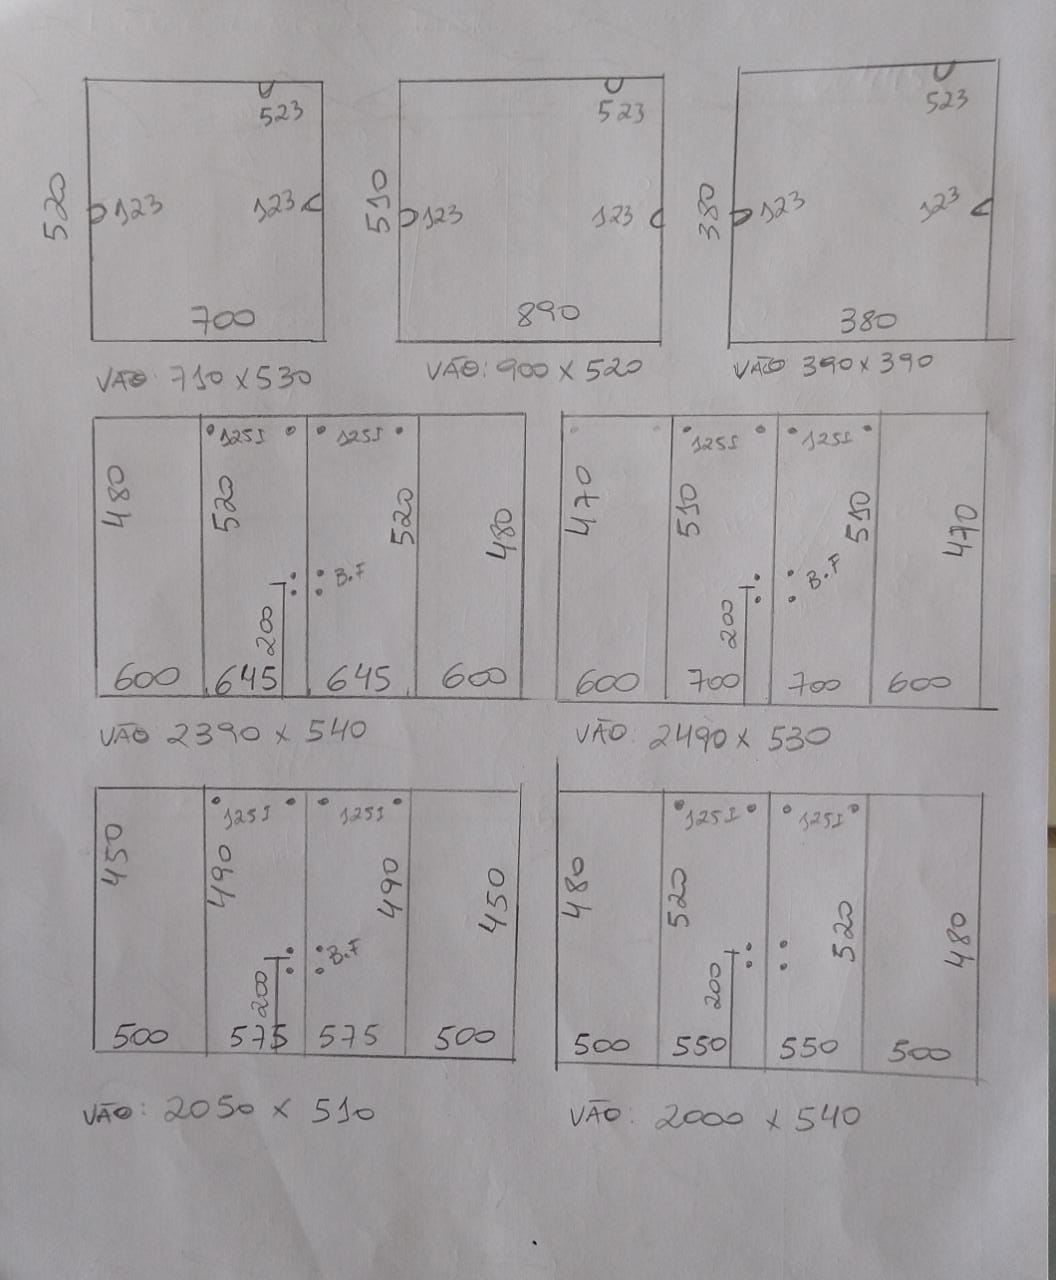 523
520
123
123
700
VÃO: 710 x 530
523
510
123
123
890
VÃO: 900 x 520
523
380
123
123
380
VÃO 390 x 390
480
1251
1251
520
520
480
B.F
200
600
645
645
600
VÃO 2390 x 540
470
1251
1251
510
510
470
B.F
200
600
700
700
600
VÃO: 2490 x 530
450
1251
1251
490
490
450
B.F
200
500
575
575
500
VÃO: 2050 x 510
480
1251
1251
520
520
480
200
500
550
550
500
VÃO: 2000 x 540